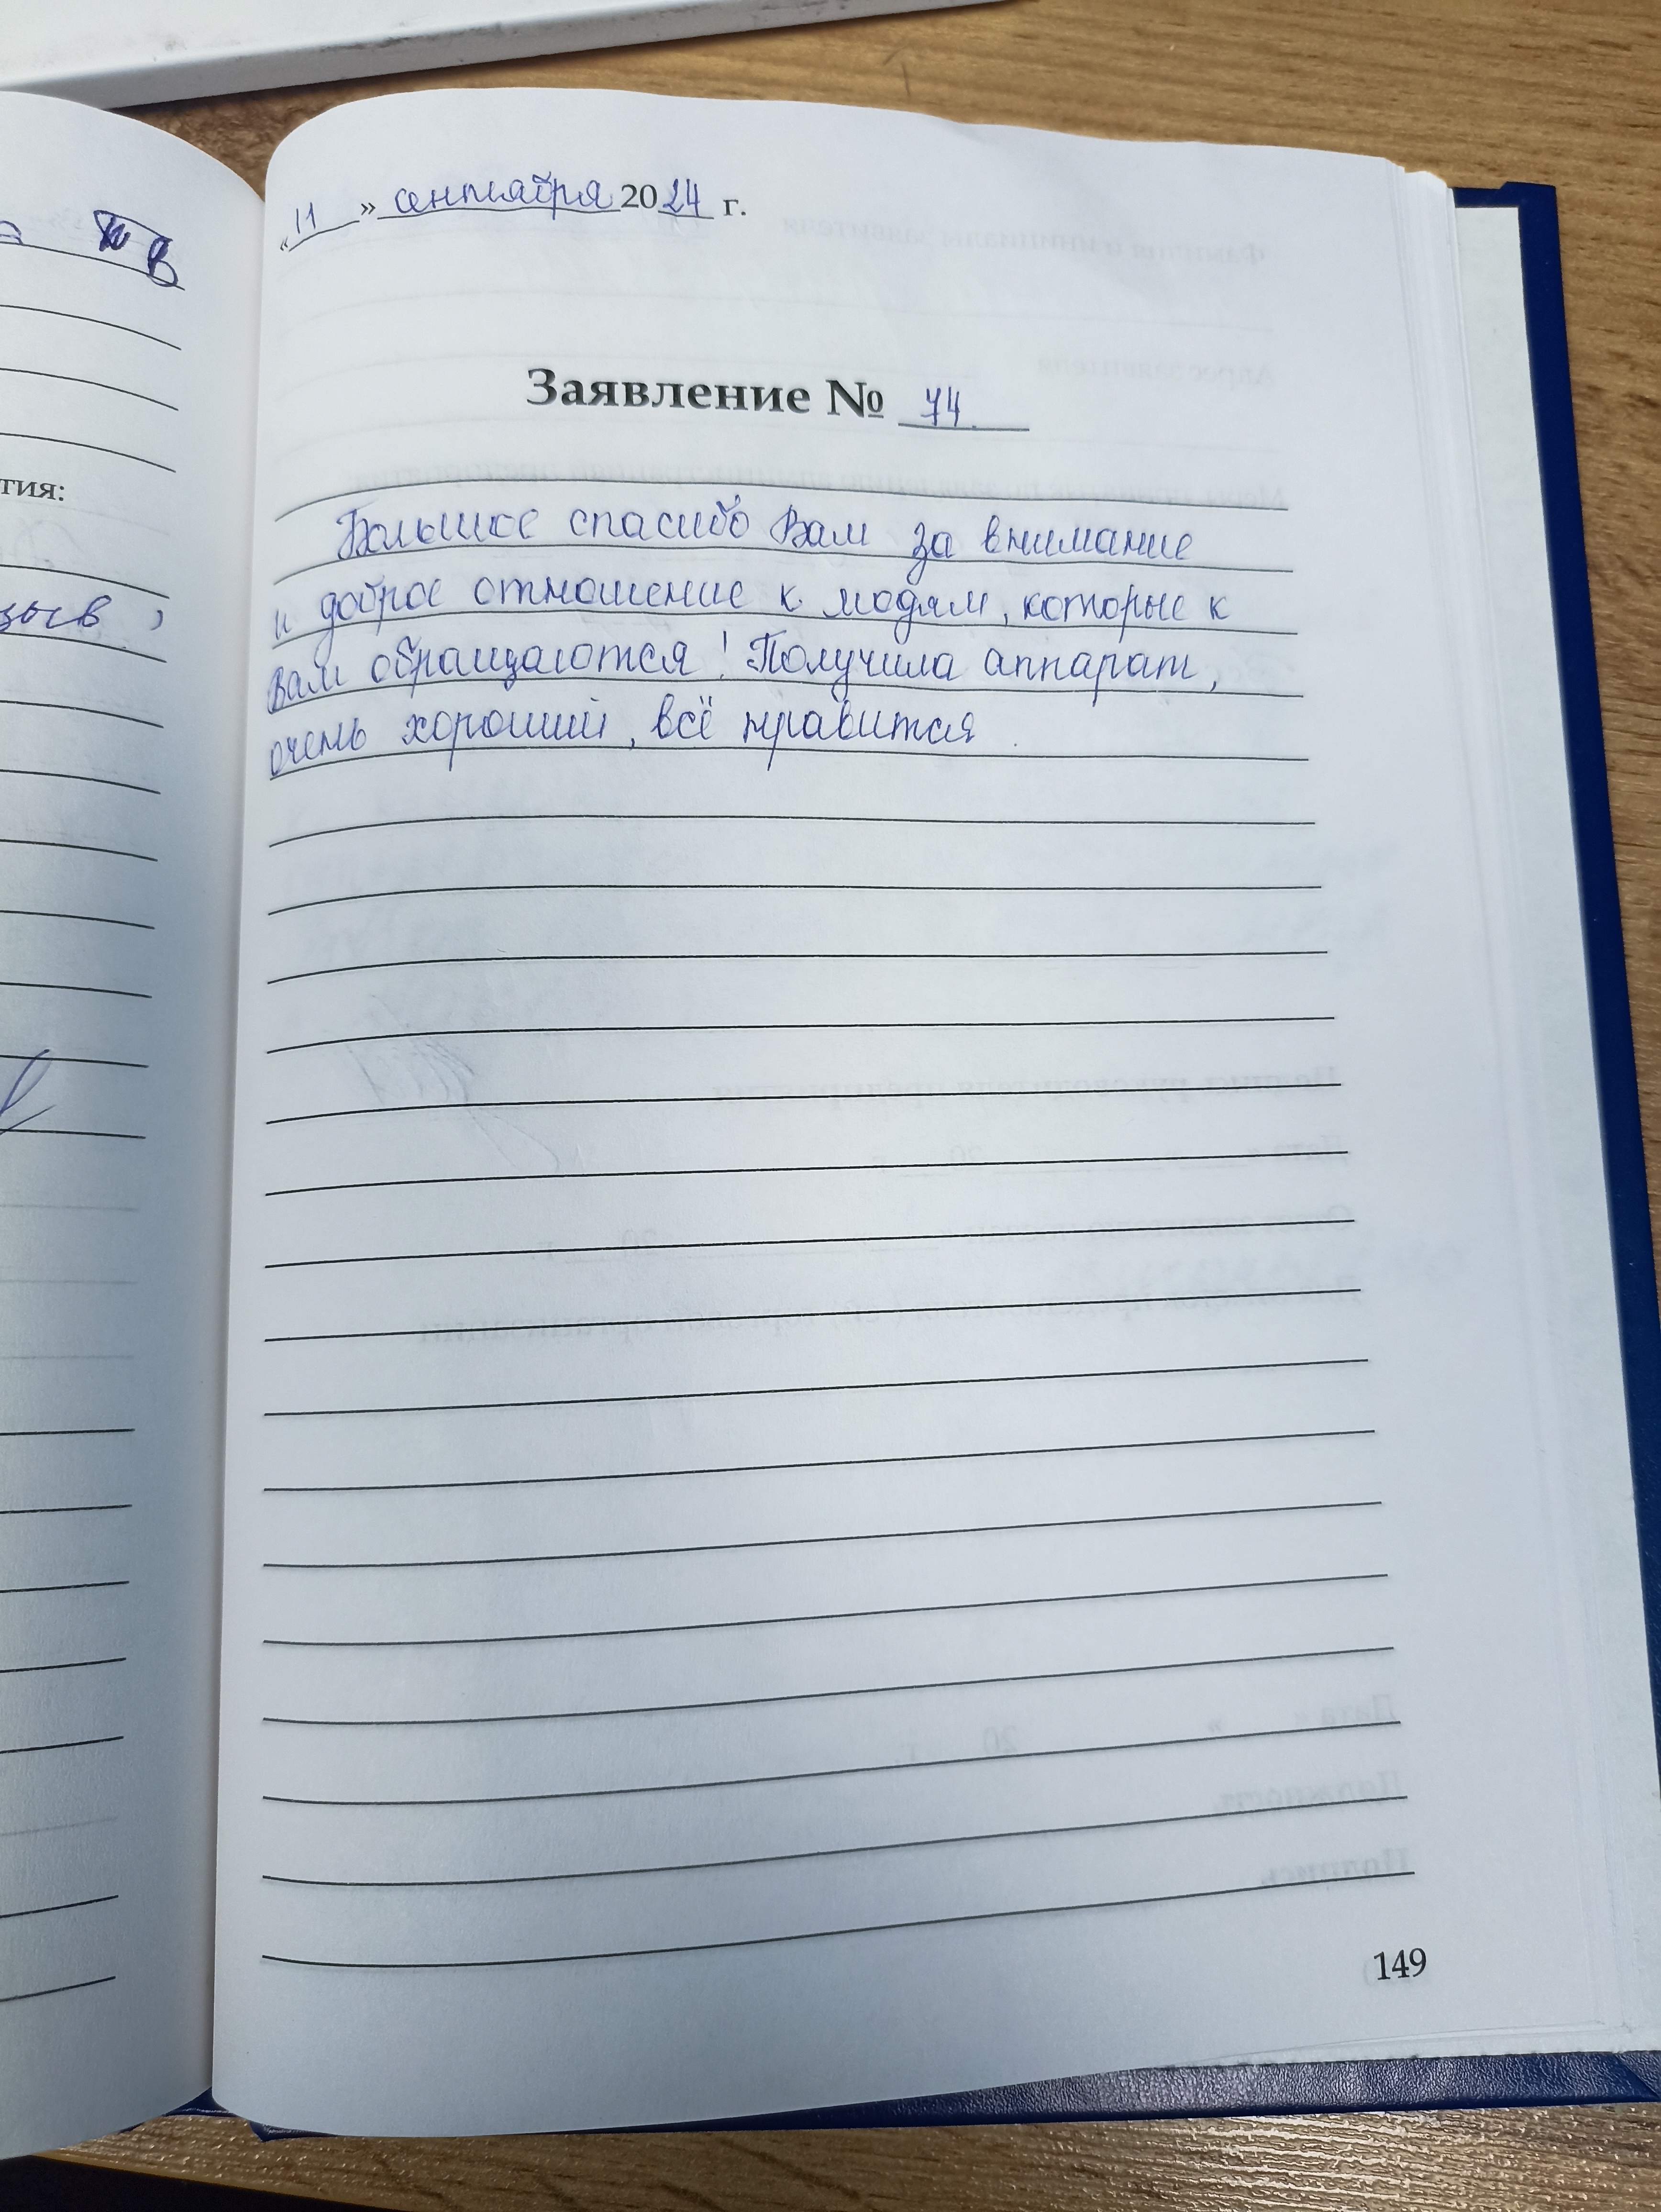 «11» сентября 2024 г.
Заявление № 74
Большое спасибо Вам за внимание
и доброе отношение к людям, которые к
вам обращаются! Получила аппарат,
очень хороший, всё нравится.
149
в
тия: